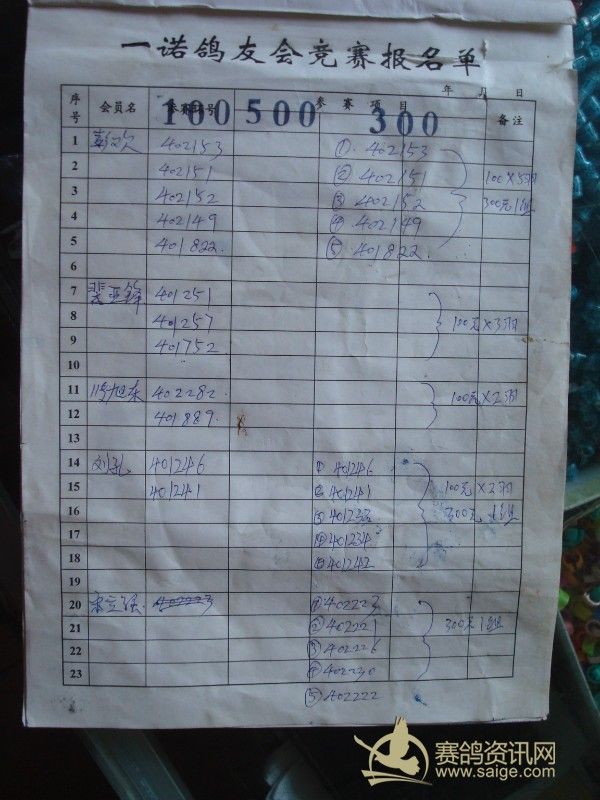 一诺鸽友会竞赛报名单
年 月 日
序号 会员名 参赛 号 参赛项目 备注
100 500 300
1 402153 ① 402153
2 402151 ② 402151 100×5羽
3 402152 ③ 402152 300元1组
4 402149 ④ 402149
5 401822. ⑤ 401822.
6
7 裴亚锋 401251
8 401257 100元×3羽
9 401752
10
11 旭东 402282. 100元×2羽
12 401889.
13
14 刘 401246 ① 401246
15 401241 ② 401241 100元×2羽
16 ③ 401233 300元 1组
17 ④ 401234
18 ⑤ 401242
19
20 宋立强. 402223 ① 402223
21 ② 402221 300元1组
22 ③ 402226
23 ④ 402230
⑤ 402222
赛鸽资讯网
www.saige.com